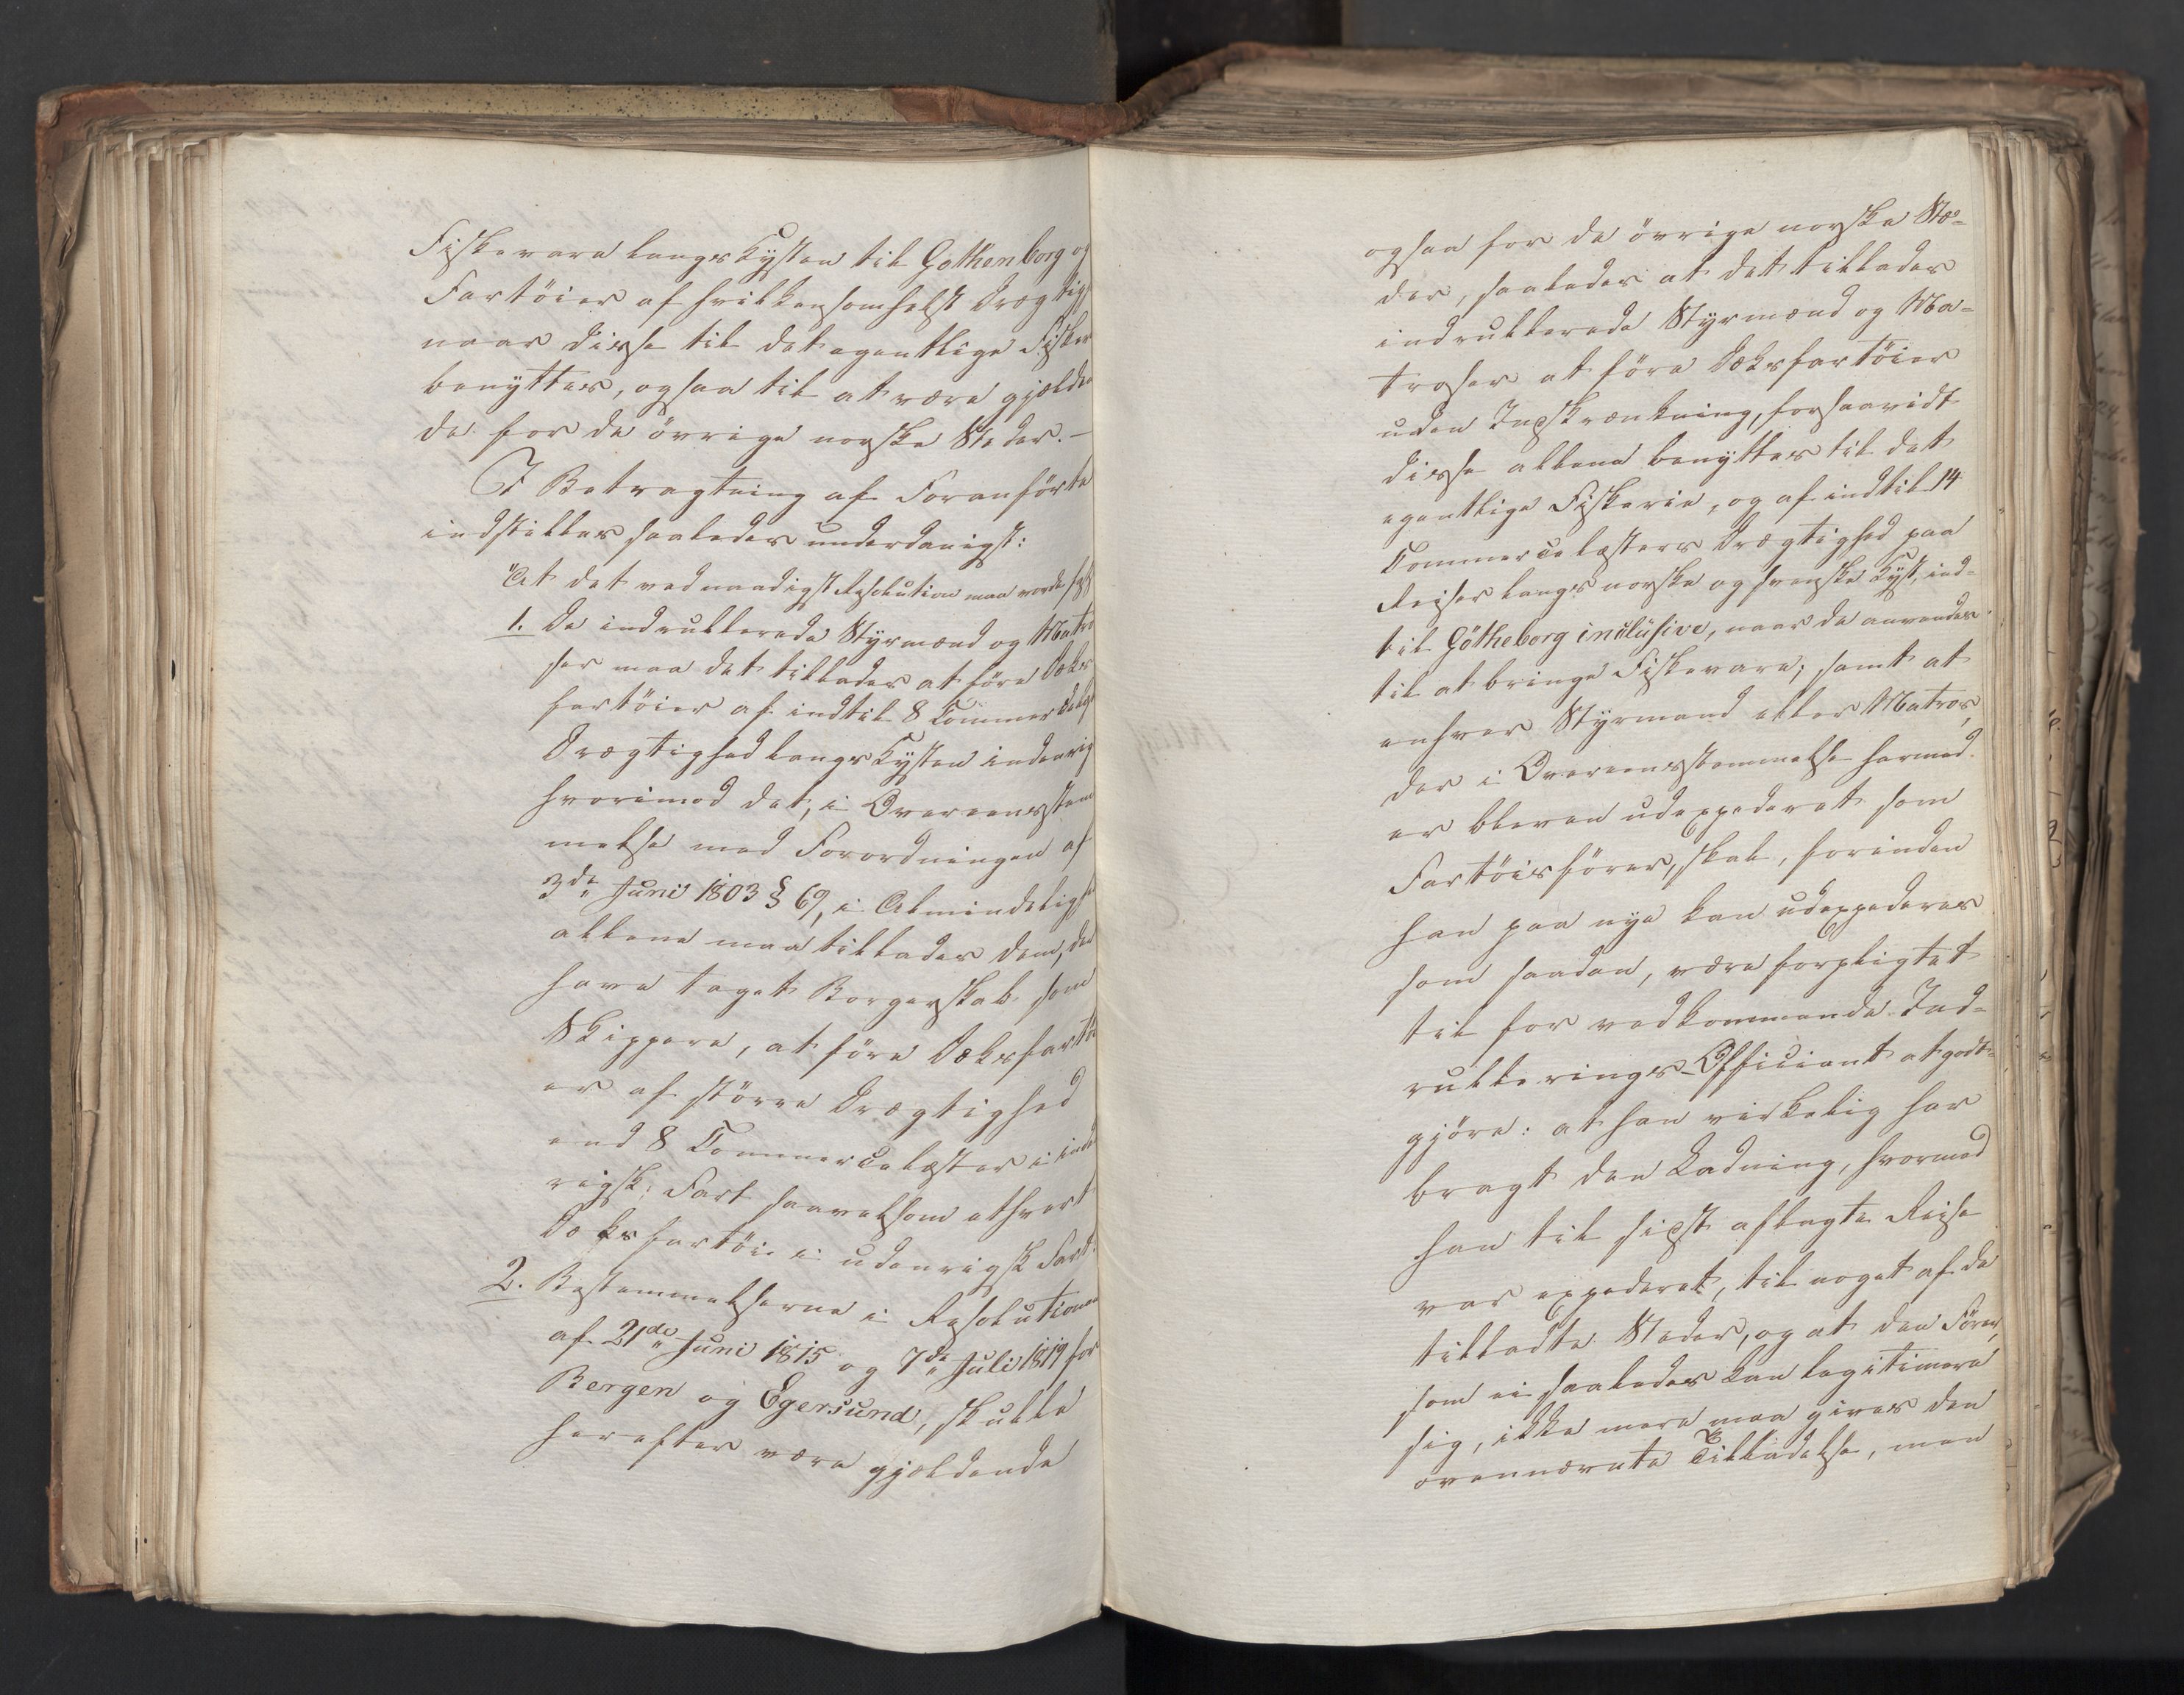 Fiskevare langs Kysten til Gothenborg og
Fartöier af hvilkensomhelst Drægtigh
naar disse til det egentlige Fisker
benyttes, ogsaa til at være gjelden
de for de övrige norske Stæder. –
I Betragtning af Foranförte
indstilles saaledes underdanigst:
"At det ved naadigst Resolution maa vorde fast
1. De indrullerede Styrmænd og Matro
ser maa det tillades at före Dæks
fartöier af indtil 8 Commercelæst
Drægtighed langs Kysten indenrig
hvorimod det, i Overeensstem
melse med Forordningen af
3de Juni 1803 § 69, i Almindelighe
allene maa tillades dem, der
have taget Borgerskab som
Skippere, at före Dæksfartöi
er af större Drægtighed
end 8 Commercelæster i inden
rigsk Fart saavelsom ethvert
Dæksfartöi i udenrigsk Fart.
2. Bestemmelserne i Resolutionen
af 21de Juni 1815 og 7de Juli 1819 for
Bergen og Egersund, skulle
herefter være gjeldende
ogsaa for de övrige norske Stæ-
der, saaledes at det tillades
indrullerede Styrmænd og Ma-
troser at före Dæksfartöier
uden Inskrænkning, forsaavidt
disse allene benyttes til det
egentlige Fiskerie, og af indtil 14
Commercelæsters Drægtighed paa
Reiser langs norske og svenske Kyst, ind-
til Götheborg inclusive, naar de anvendes
til at bringe Fiskevare; samt at
enhver Styrmand eller Matros,
der i Overeensstemmelse hermed
er bleven udexpederet som
Fartöisförer, skal, forinden
han paa nye kan udexpederes
som saadan, være forpligtet
til for vedkommende Ind-
rullerings-Officiant at godt-
gjöre: at han virkelig har
bragt den Ladning, hvormed
han til sidst aflagte Reise
var expederet, til noget af de
tilladte Steder, og at den Förer,
som ei saaledes kan legitimere
sig, ikke mere maa gives den
ovennævnte Tilladelse, men